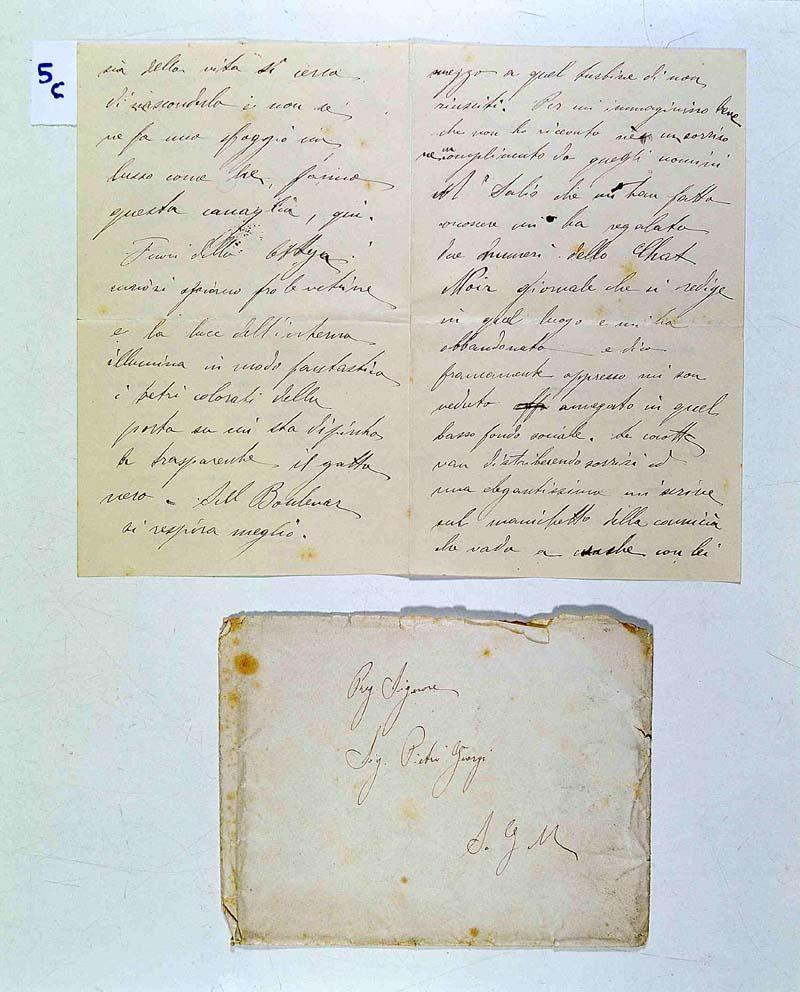 5c
sia della vita si cerca
di nasconderla e non se
ne fa uno sfoggio un
lusso come che, fanno
questa canaglia, qui.
Fuori della
curiosi spiano fra le vetrine
e la luce dell'interno
illumina in modo fantastico
i vetri colorati della
porta su cui sta dipinto
in trasparente il gatto
nero = Sul Boulevar
si respira meglio.
mezzo a quel turbine di non
riusciti. Per cui immaginino bene
che non ho ricevuto nè un sorriso
ne un complimento da quegli uomini
Al Salis che mi han fatto
conoscere mi ha regalato
due numeri dello Chat
Noir giornale che si redige
in quel luogo e mi ha
abbandonato e dico
francamente appresso mi son
veduto annegato in quel
basso fondo sociale. Le cocotte
van distribuendo sorrisi ed
una elegantissima mi scrive
sul manichetto della camicia
che vada a con lei
Preg. Signore
Sig. Pietro Giorgi
S. G. M.